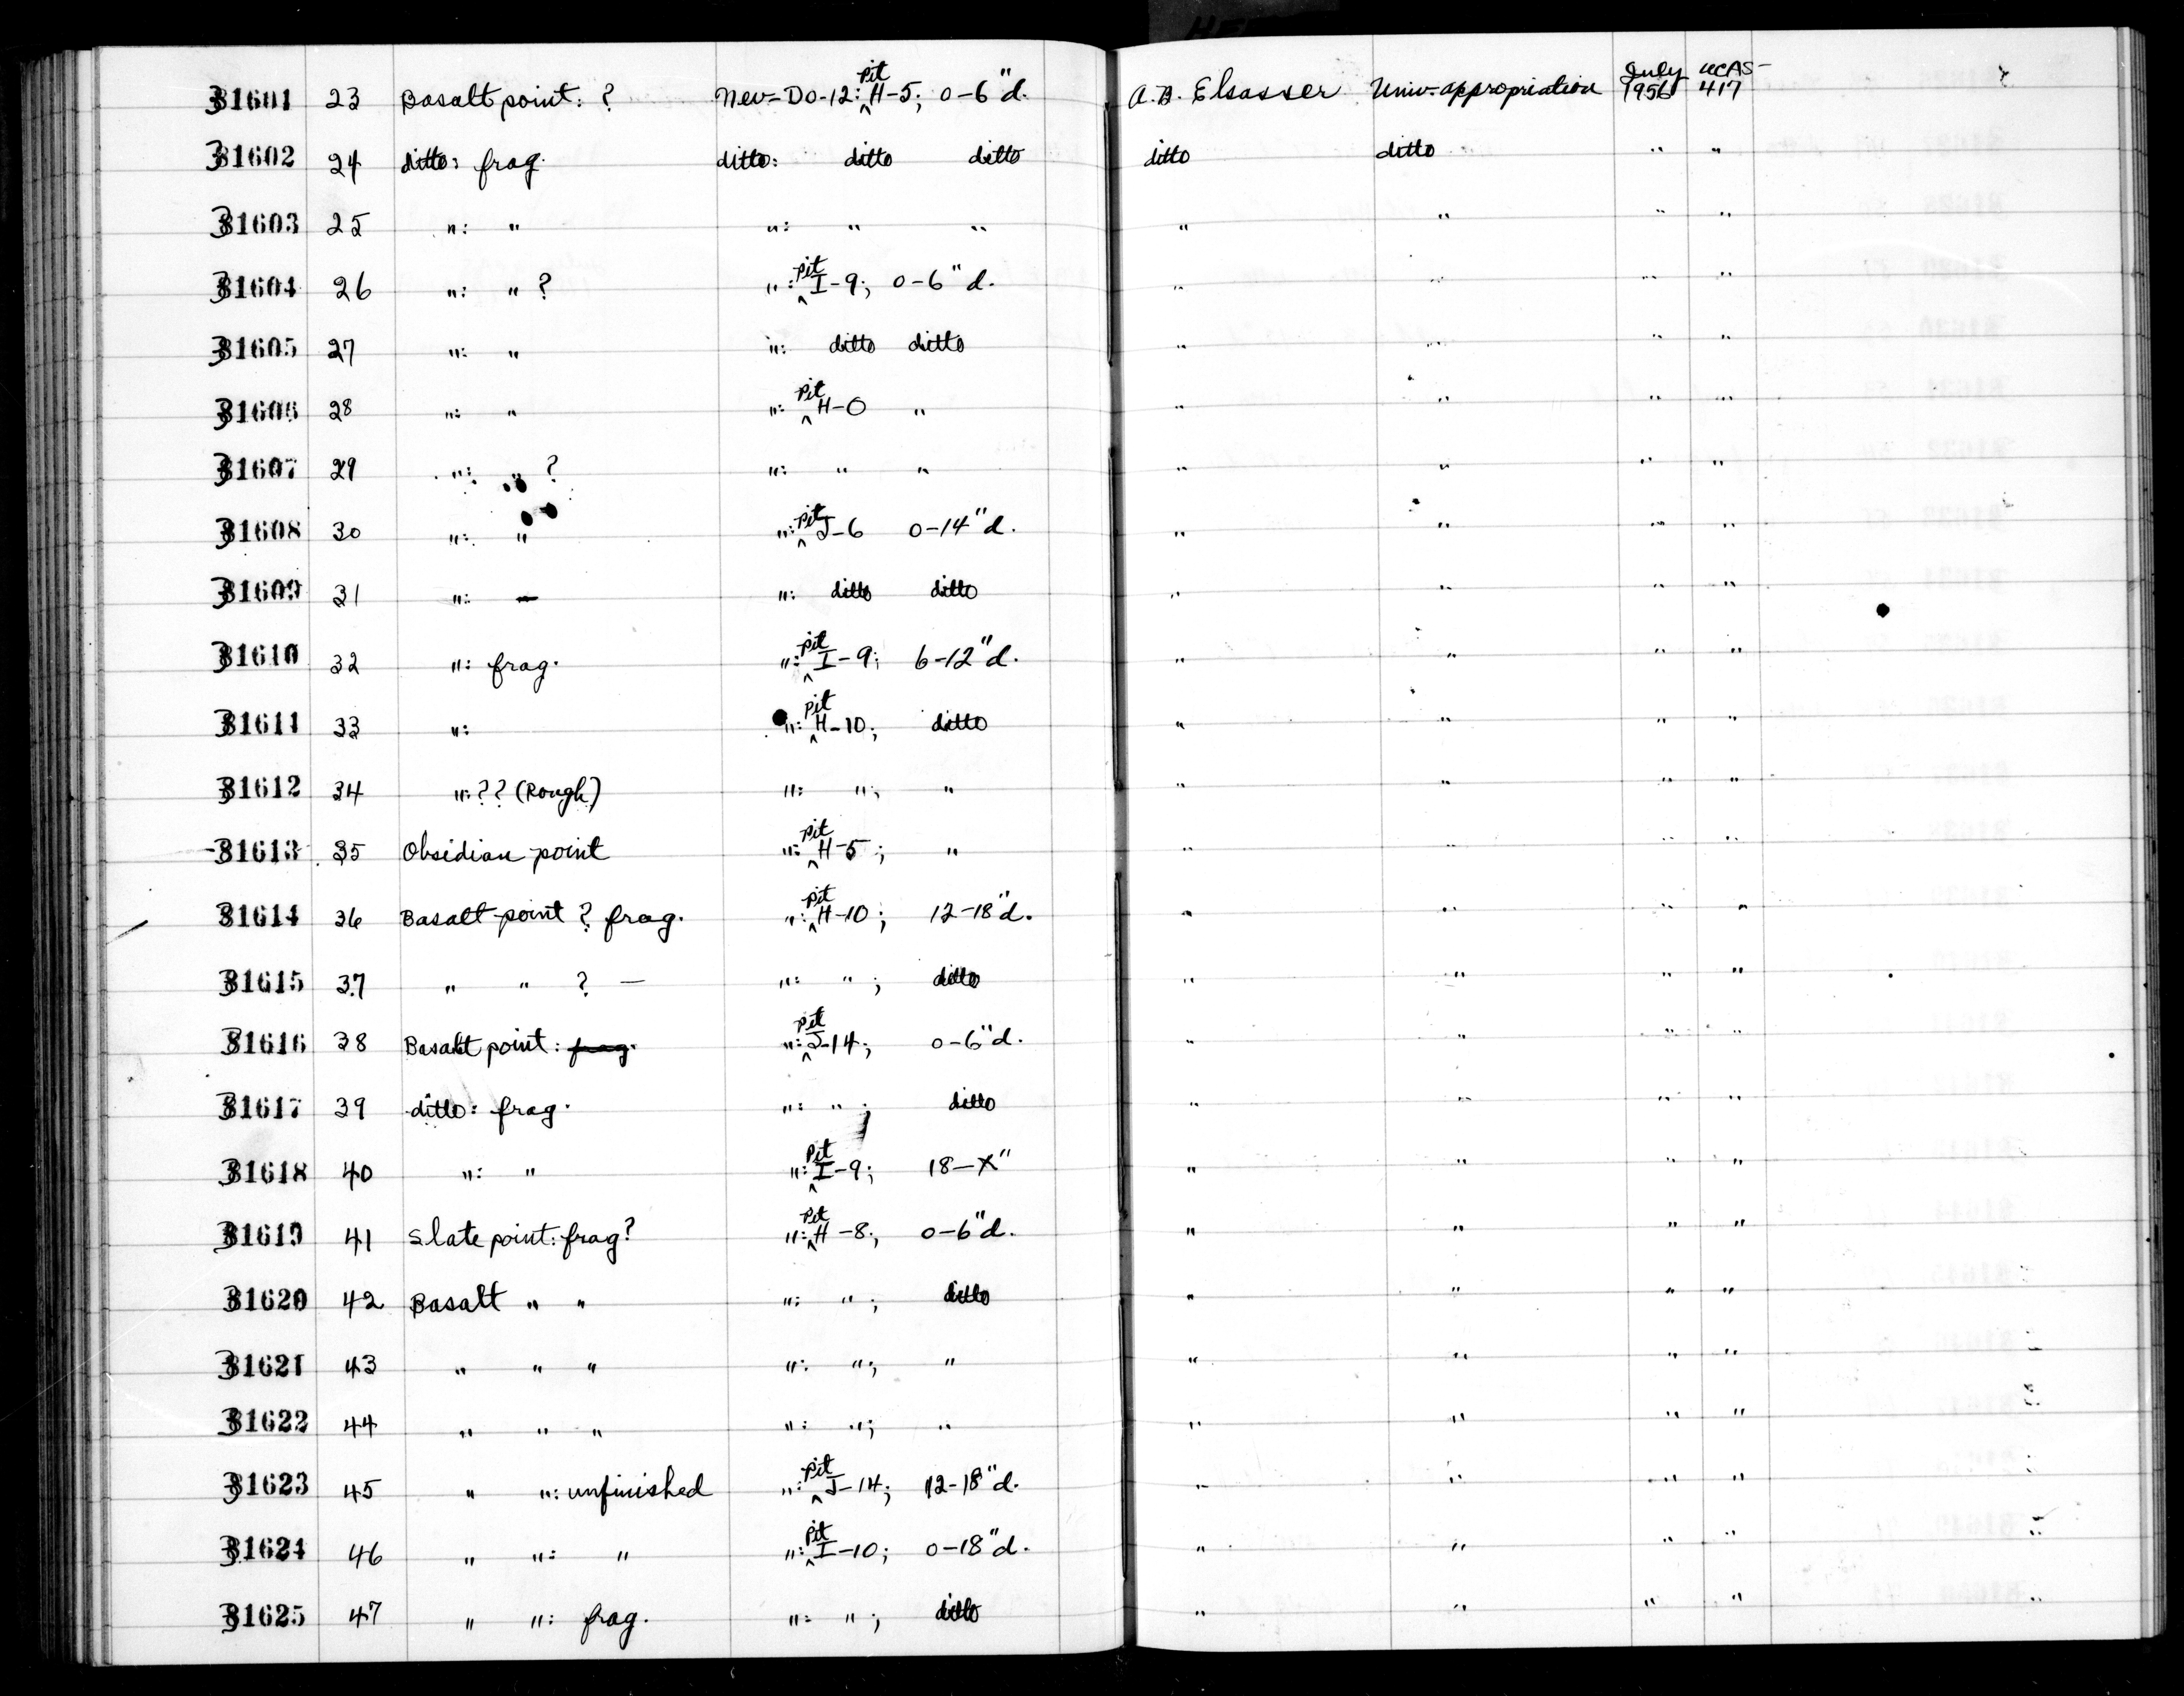 31601 23 Basalt point: ? Nev-Do-12: pit H-5; 0-6"d. A.B. Elsasser Univ. appropriation July 1956 UCAS-417
31602 24 ditto: frag. ditto: ditto ditto ditto ditto " "
31603 25 ": " ": " " " " " "
31604 26 ": " ? ": pit I-9; 0-6"d. " " " "
31605 27 ": " ": ditto ditto " " " "
31606 28 ": " ": pit H-0 " " " " "
31607 29 ": " ? ": " " " " " "
31608 30 ": " ": pit J-6 0-14"d. " " " "
31609 31 ": — ": ditto ditto " " " "
31610 32 ": frag. ": pit I-9; 6-12"d. " " " "
31611 33 ": ": pit H-10; ditto " " " "
31612 34 ": ?? (Rough) ": "; " " " " "
31613 35 Obsidian point ": pit H-5; " " " " "
31614 36 Basalt point ? frag. ": pit H-10; 12-18"d. " " " "
31615 37 " " ? — ": "; ditto " " " "
31616 38 Basalt point: frag. ": pit J-14; 0-6"d. " " " "
31617 39 ditto: frag. ": "; ditto " " " "
31618 40 ": " ": pit I-9; 18-X" " " " "
31619 41 Slate point: frag? ": pit H-8; 0-6"d. " " " "
31620 42 Basalt " " ": "; ditto " " " "
31621 43 " " " ": "; " " " " "
31622 44 " " " ": "; " " " " "
31623 45 " ": unfinished ": pit J-14; 12-18"d. " " " "
31624 46 " ": " ": pit I-10; 0-18"d. " " " "
31625 47 " ": frag. ": "; ditto " " " "